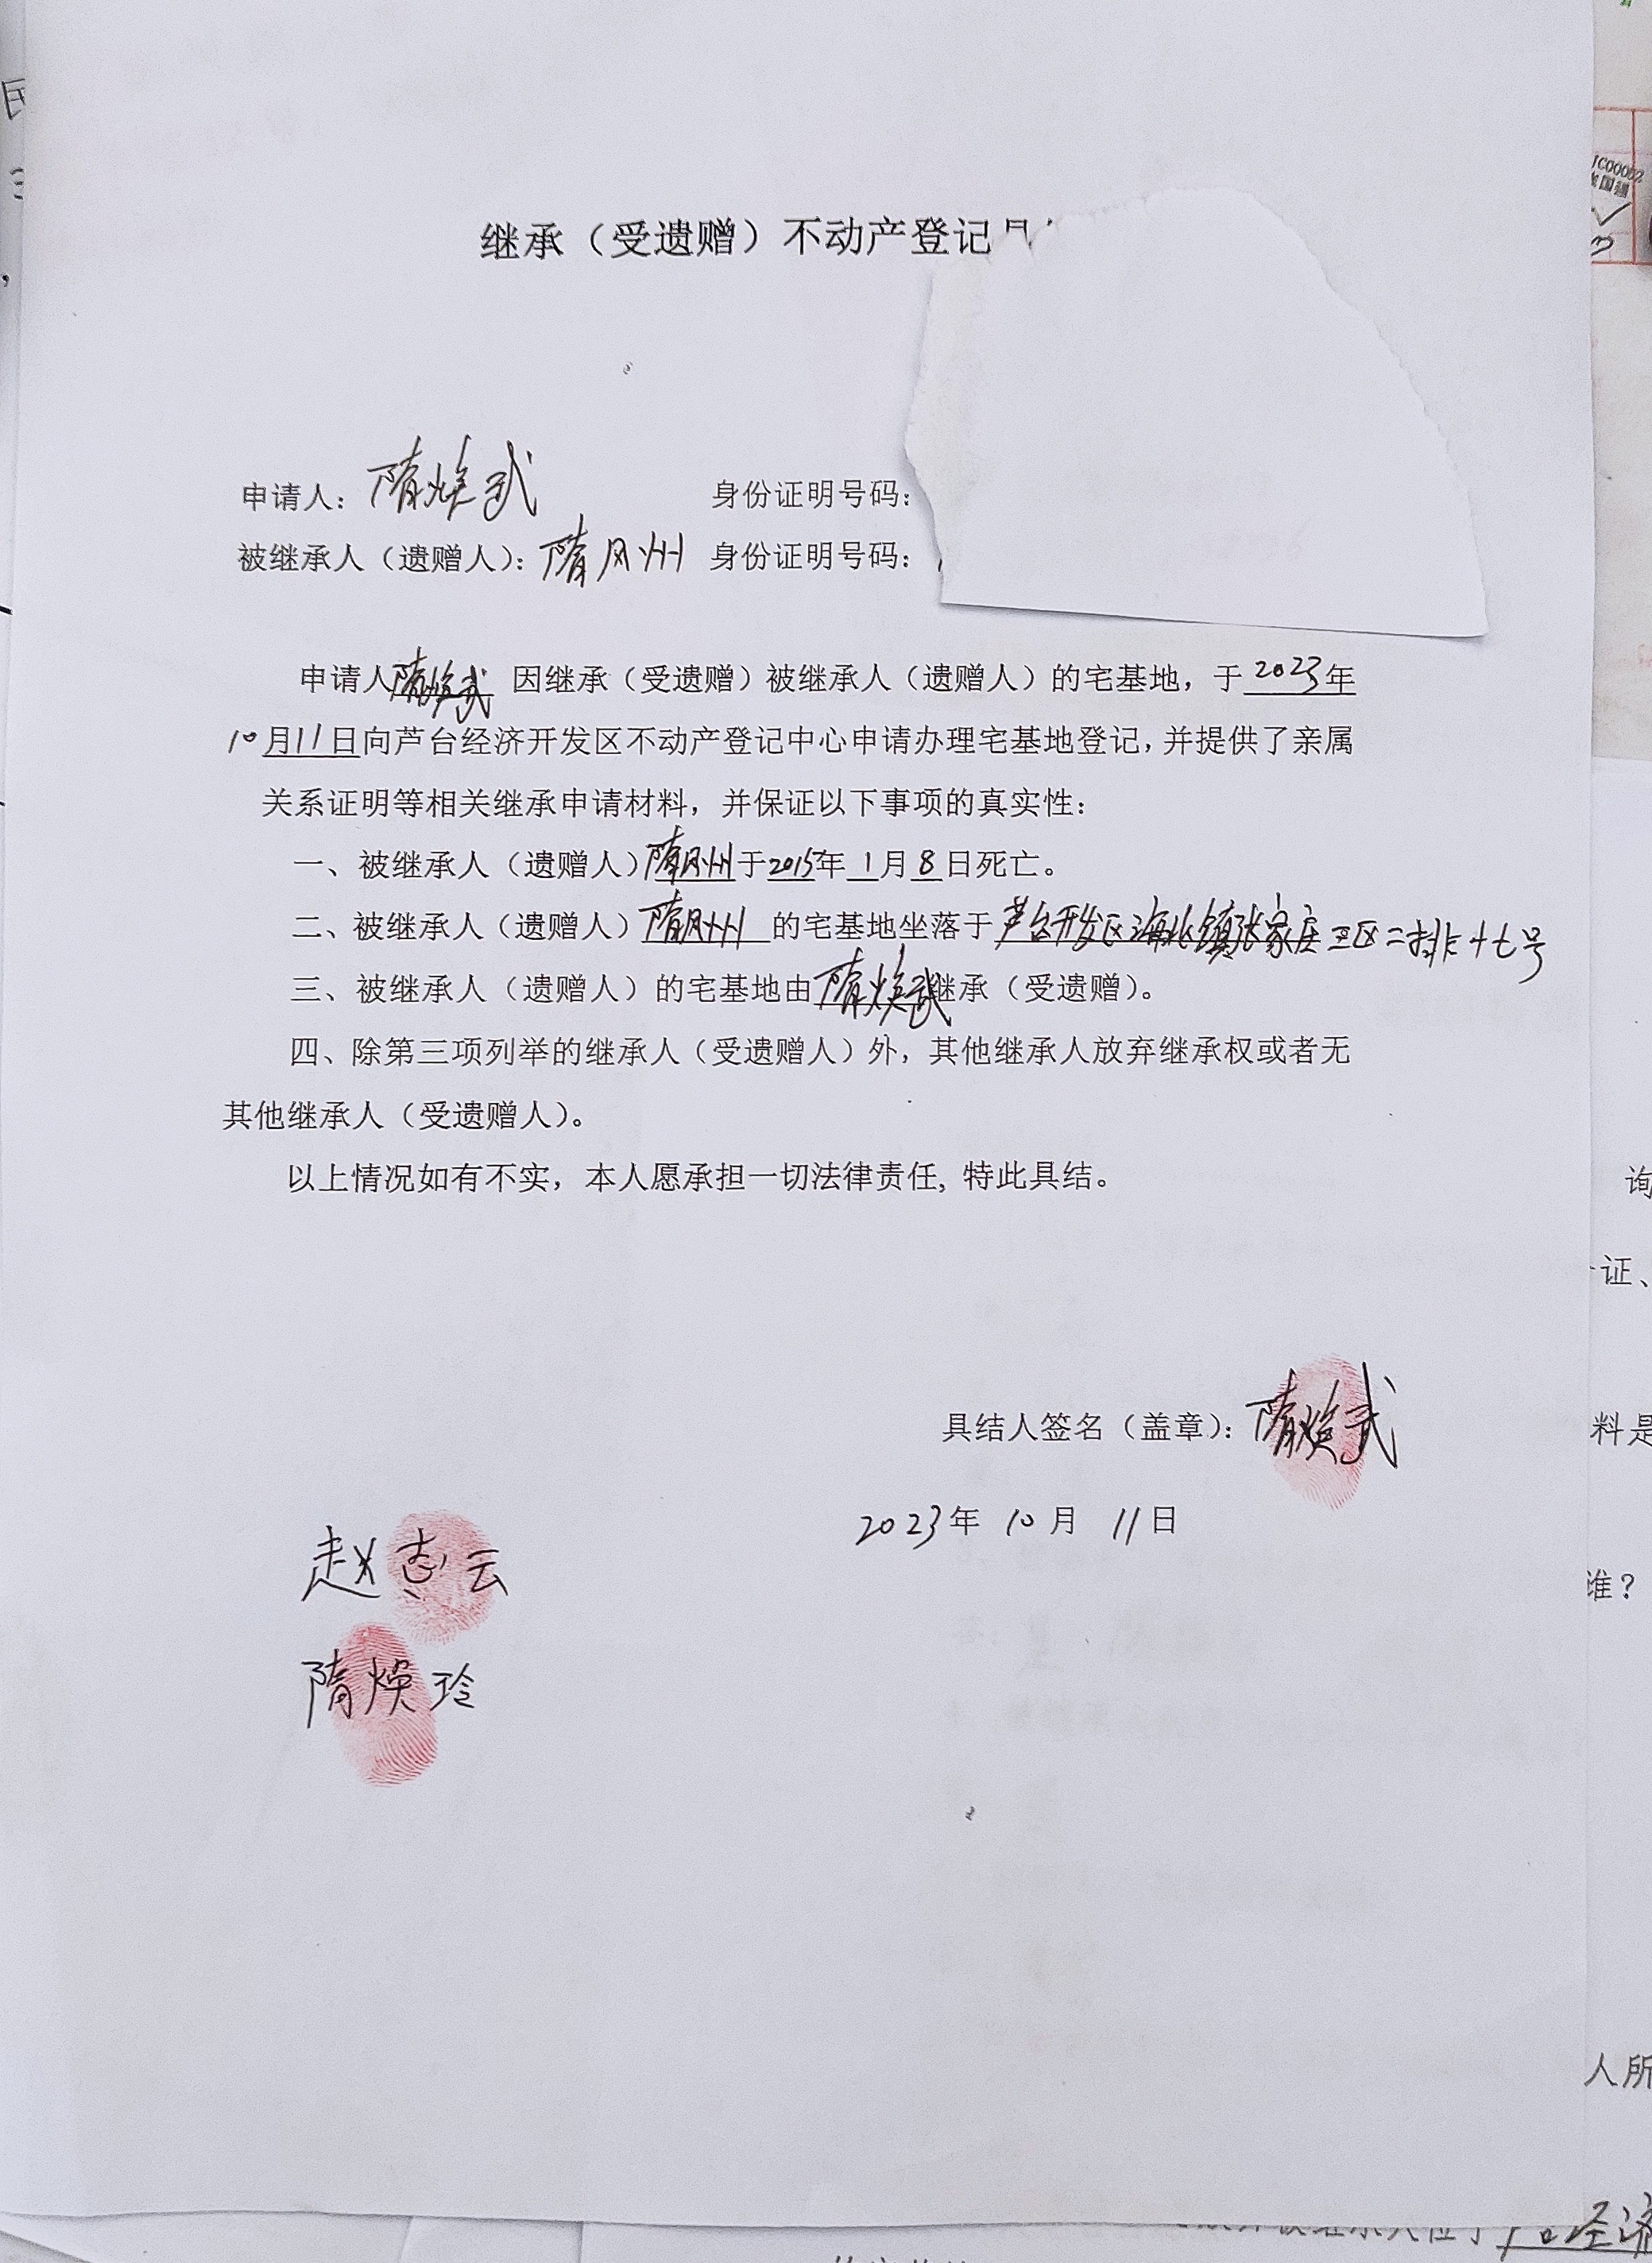 继承（受遗赠）不动产登记
申请人：隋焕武 身份证明号码：
被继承人（遗赠人）：隋风州 身份证明号码：
申请人隋焕武 因继承（受遗赠）被继承人（遗赠人）的宅基地，于2023年
10月11日向芦台经济开发区不动产登记中心申请办理宅基地登记，并提供了亲属
关系证明等相关继承申请材料，并保证以下事项的真实性：
一、被继承人（遗赠人）隋风州于2015年1月8日死亡。
二、被继承人（遗赠人）隋风州的宅基地坐落于芦台开发区海北镇张家庄三区二排十七号
三、被继承人（遗赠人）的宅基地由隋焕武继承（受遗赠）。
四、除第三项列举的继承人（受遗赠人）外，其他继承人放弃继承权或者无
其他继承人（受遗赠人）。
以上情况如有不实，本人愿承担一切法律责任，特此具结。
具结人签名（盖章）：隋焕武
2023年 10月 11日
赵志云
隋焕玲
民
JC00002
询
证、
料是
谁？
人所
经济